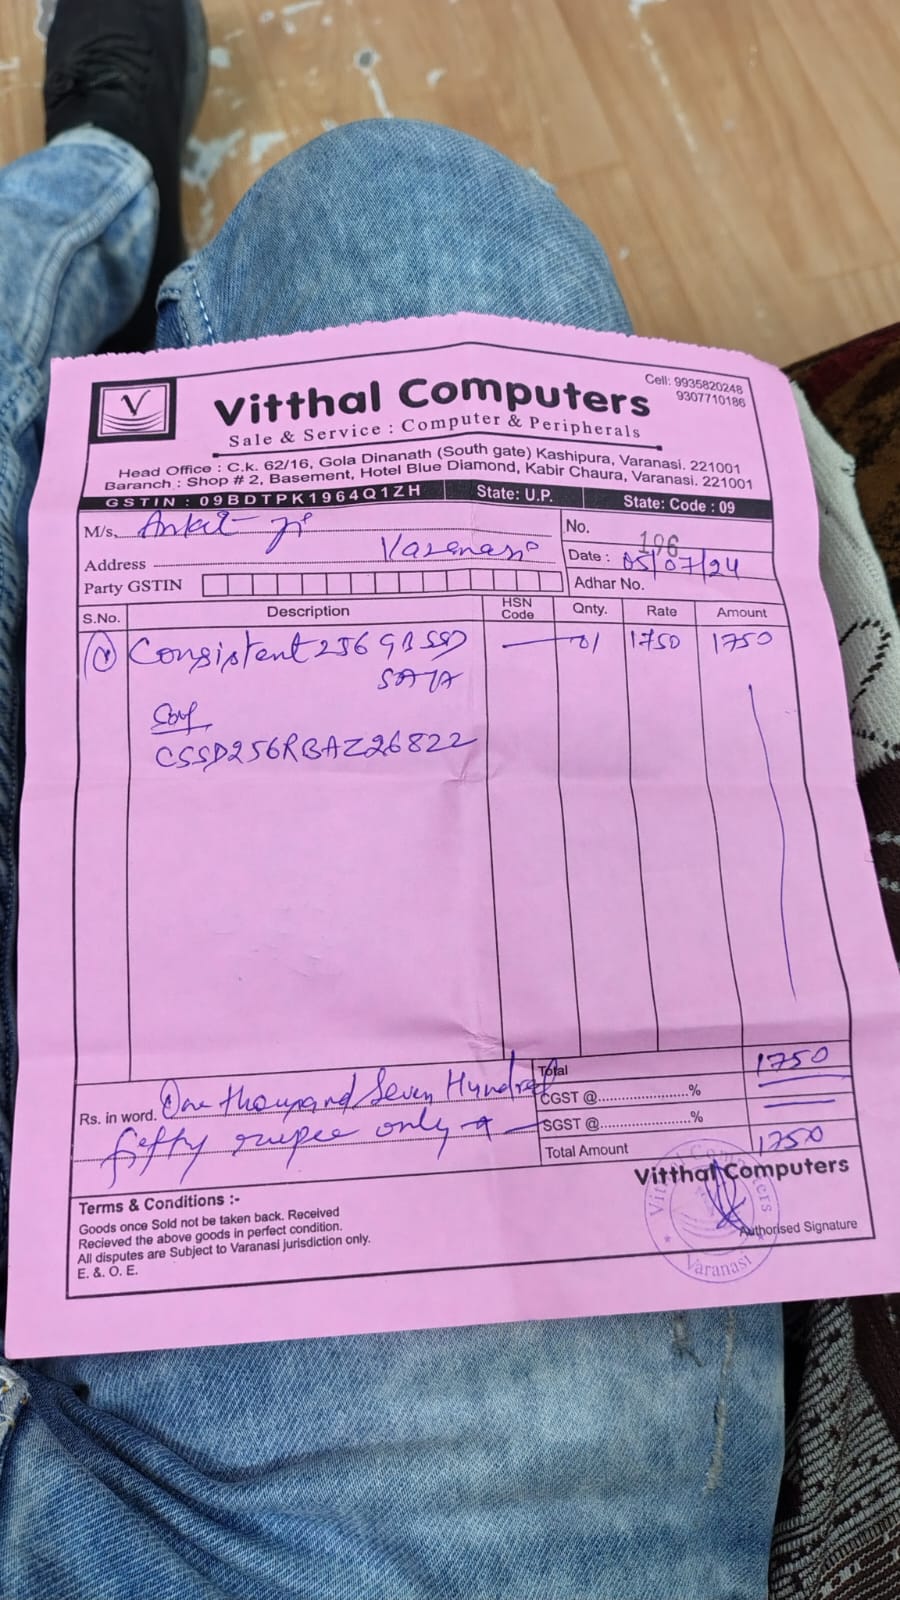 Vitthal Computers
Cell: 9935820248
9307710186
Sale & Service : Computer & Peripherals
Head Office : C.k. 62/16, Gola Dinanath (South gate) Kashipura, Varanasi. 221001
Baranch : Shop # 2, Basement, Hotel Blue Diamond, Kabir Chaura, Varanasi. 221001
GSTIN : 09BDTPK1964Q1ZH State: U.P. State: Code : 09
M/s. Ankit Ji No. 196
Address Varanasi Date : 05/07/24
Party GSTIN Adhar No.
S.No. Description HSN Code Qnty. Rate Amount
1 Consistent 256 GB SSD 01 1750 1750
SATA
CSSD256RBAZ26822
Total 1750
Rs. in word. One thousand Seven Hundred CGST @.......................%
fiffty rupee only SGST @.......................%
Total Amount 1750
Vitthal Computers
Terms & Conditions :-
Goods once Sold not be taken back. Received
Recieved the above goods in perfect condition.
All disputes are Subject to Varanasi jurisdiction only.
E. &. O. E.
Authorised Signature
Vitthal Computers
Varanasi